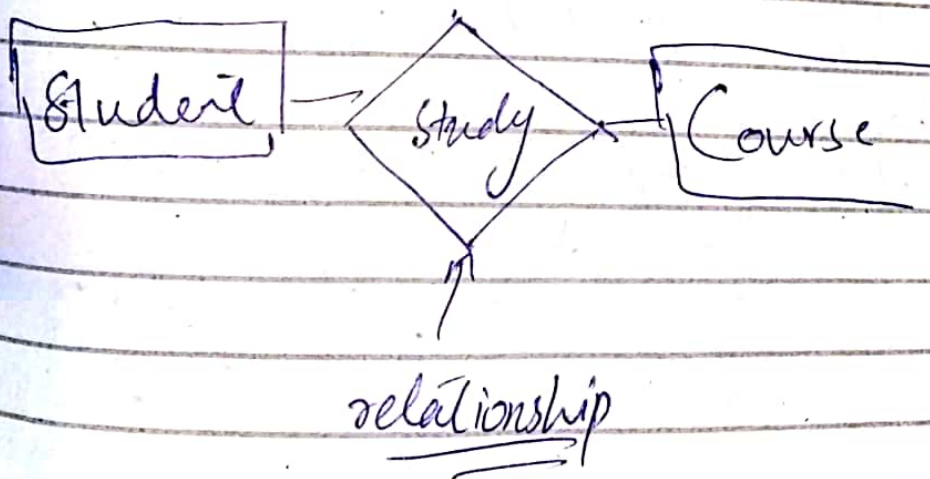 Student
Study
Course
relationship